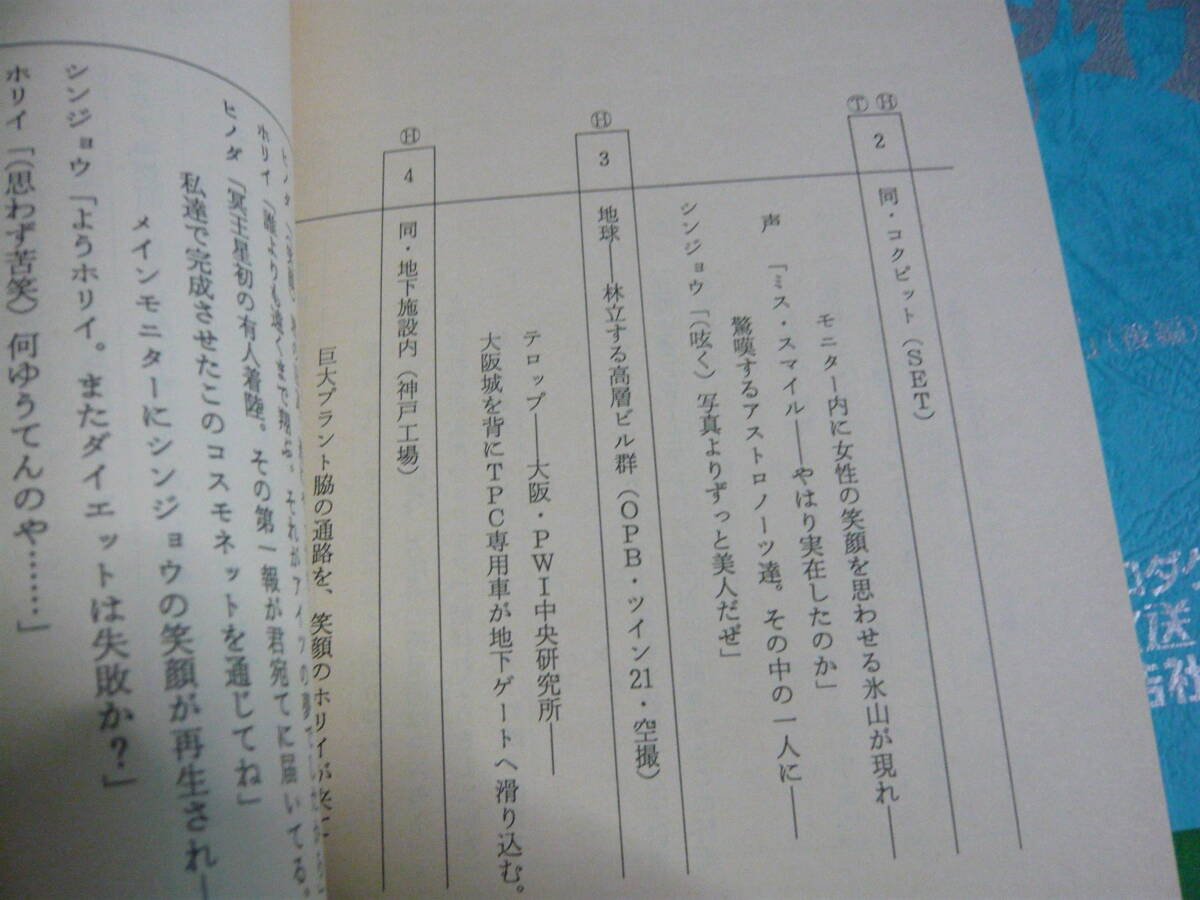 Ⓗ
Ⓣ
2
同・コクピット（SET）
モニター内に女性の笑顔を思わせる氷山が現れ――
声　「ミス・スマイル――やはり実在したのか」
驚嘆するアストロノーツ達。その中の一人に――
シンジョウ「（呟く）写真よりずっと美人だぜ」
Ⓗ
3
地球――林立する高層ビル群（OPB・ツイン21・空撮）
テロップ――大阪・PWI中央研究所――
大阪城を背にTPC専用車が地下ゲートへ滑り込む。
Ⓗ
4
同・地下施設内（神戸工場）
巨大プラント脇の通路を、笑顔のホリイが
ホリイ「誰よりも遠くまで翔ぶ。それがアイツの夢
ヒノダ「冥王星初の有人着陸。その第一報が君宛てに届いてる。
私達で完成させたこのコスモネットを通じてね」
メインモニターにシンジョウの笑顔が再生され―
シンジョウ「ようホリイ。またダイエットは失敗か？」
ホリイ「（思わず苦笑）何ゆうてんのや……」
（後編）
送